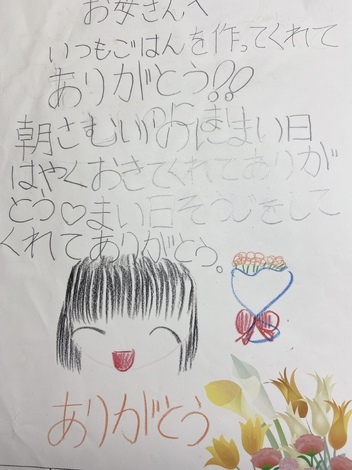 お母さんへ
いつもごはんを作ってくれて
ありがとう!!
朝さむいのにまい日
はやくおきてくれてありが
とう♡まい日そうじをして
くれてありがとう。
ありがとう